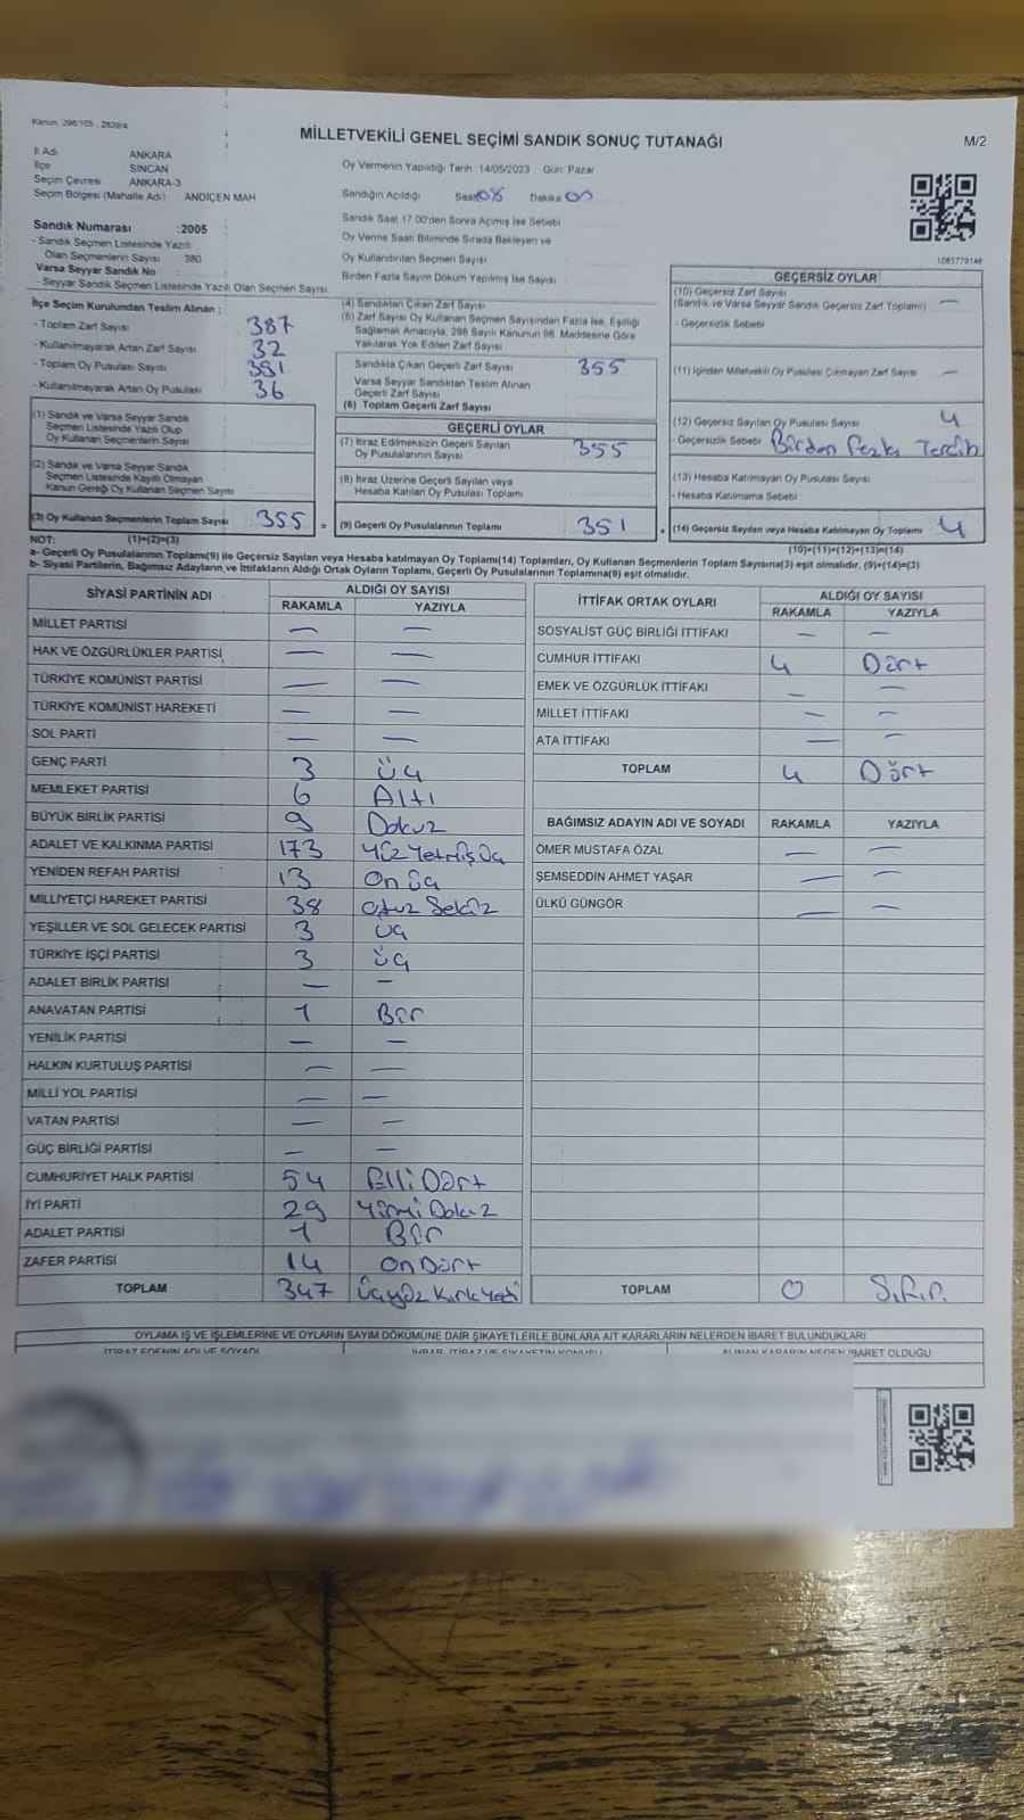 Kanun: 298/105 , 2839/4
MİLLETVEKİLİ GENEL SEÇİMİ SANDIK SONUÇ TUTANAĞI
M/2
İl Adı ANKARA
İlçe SİNCAN
Seçim Çevresi ANKARA-3
Seçim Bölgesi (Mahalle Adı) ANDİÇEN MAH
Oy Vermenin Yapıldığı Tarih: 14/05/2023 Gün: Pazar
Sandığın Açıldığı Saat 08 Dakika 00
Sandık Saat 17.00'den Sonra Açılmış İse Sebebi
Oy Verme Saati Bitiminde Sırada Bekleyen ve
Oy Kullandırılan Seçmen Sayısı
Birden Fazla Sayım Döküm Yapılmış İse Sayısı
Sandık Numarası :2005
- Sandık Seçmen Listesinde Yazılı
Olan Seçmenlerin Sayısı 380
Varsa Seyyar Sandık No
- Seyyar Sandık Seçmen Listesinde Yazılı Olan Seçmen Sayısı:
İlçe Seçim Kurulundan Teslim Alınan :
- Toplam Zarf Sayısı 387
- Kullanılmayarak Artan Zarf Sayısı 32
- Toplam Oy Pusulası Sayısı
- Kullanılmayarak Artan Oy Pusulası 36
(1) Sandık ve Varsa Seyyar Sandık
Seçmen Listesinde Yazılı Olup
Oy Kullanan Seçmenlerin Sayısı
(2) Sandık ve Varsa Seyyar Sandık
Seçmen Listesinde Kayıtlı Olmayan
Kanun Gereği Oy Kullanan Seçmen Sayısı
(3) Oy Kullanan Seçmenlerin Toplam Sayısı 355 =
(4) Sandıktan Çıkan Zarf Sayısı
(5) Zarf Sayısı Oy Kullanan Seçmen Sayısından Fazla İse, Eşitliği
Sağlamak Amacıyla, 298 Sayılı Kanunun 98. Maddesine Göre
Yakılarak Yok Edilen Zarf Sayısı
Sandıkta Çıkan Geçerli Zarf Sayısı 355
Varsa Seyyar Sandıktan Teslim Alınan
Geçerli Zarf Sayısı
(6) Toplam Geçerli Zarf Sayısı
GEÇERLİ OYLAR
(7) İtiraz Edilmeksizin Geçerli Sayılan
Oy Pusulalarının Sayısı 355
(8) İtiraz Üzerine Geçerli Sayılan veya
Hesaba Katılan Oy Pusulası Toplamı
(9) Geçerli Oy Pusulalarının Toplamı 351 +
1081779148
GEÇERSİZ OYLAR
(10) Geçersiz Zarf Sayısı —
(Sandık ve Varsa Seyyar Sandık Geçersiz Zarf Toplamı)
- Geçersizlik Sebebi
(11) İçinden Milletvekili Oy Pusulası Çıkmayan Zarf Sayısı —
(12) Geçersiz Sayılan Oy Pusulası Sayısı 4
- Geçersizlik Sebebi Birden Fazla Tercih
(13) Hesaba Katılmayan Oy Pusulası Sayısı
- Hesaba Katılmama Sebebi
(14) Geçersiz Sayılan veya Hesaba Katılmayan Oy Toplamı 4
NOT: (1)+(2)=(3)
(10)+(11)+(12)+(13)=(14)
a- Geçerli Oy Pusulalarının Toplamı(9) ile Geçersiz Sayılan veya Hesaba katılmayan Oy Toplamı(14) Toplamları, Oy Kullanan Seçmenlerin Toplam Sayısına(3) eşit olmalıdır. (9)+(14)=(3)
b- Siyasi Partilerin, Bağımsız Adayların ve İttifakların Aldığı Ortak Oyların Toplamı, Geçerli Oy Pusulalarının Toplamına(9) eşit olmalıdır.
SİYASİ PARTİNİN ADI ALDIĞI OY SAYISI
RAKAMLA YAZIYLA
MİLLET PARTİSİ — —
HAK VE ÖZGÜRLÜKLER PARTİSİ — —
TÜRKİYE KOMÜNİST PARTİSİ — —
TÜRKİYE KOMÜNİST HAREKETİ — —
SOL PARTİ — —
GENÇ PARTİ 3 üç
MEMLEKET PARTİSİ 6 Altı
BÜYÜK BİRLİK PARTİSİ 9 Dokuz
ADALET VE KALKINMA PARTİSİ 173 Yüz Yetmiş Üç
YENİDEN REFAH PARTİSİ 13 On üç
MİLLİYETÇİ HAREKET PARTİSİ 38 Otuz Sekiz
YEŞİLLER VE SOL GELECEK PARTİSİ 3 üç
TÜRKİYE İŞÇİ PARTİSİ 3 üç
ADALET BİRLİK PARTİSİ — —
ANAVATAN PARTİSİ 1 Bir
YENİLİK PARTİSİ — —
HALKIN KURTULUŞ PARTİSİ — —
MİLLİ YOL PARTİSİ — —
VATAN PARTİSİ — —
GÜÇ BİRLİĞİ PARTİSİ — —
CUMHURİYET HALK PARTİSİ 54 Elli Dört
İYİ PARTİ 29 Yirmi Dokuz
ADALET PARTİSİ 1 Bir
ZAFER PARTİSİ 14 On Dört
TOPLAM 347 Üçyüz Kırk Yedi
İTTİFAK ORTAK OYLARI ALDIĞI OY SAYISI
RAKAMLA YAZIYLA
SOSYALİST GÜÇ BİRLİĞİ İTTİFAKI — —
CUMHUR İTTİFAKI 4 Dört
EMEK VE ÖZGÜRLÜK İTTİFAKI — —
MİLLET İTTİFAKI — —
ATA İTTİFAKI — —
TOPLAM 4 Dört
BAĞIMSIZ ADAYIN ADI VE SOYADI RAKAMLA YAZIYLA
ÖMER MUSTAFA ÖZAL — —
ŞEMSEDDİN AHMET YAŞAR — —
ÜLKÜ GÜNGÖR — —
TOPLAM 0 Sıfır
OYLAMA İŞ VE İŞLEMLERİNE VE OYLARIN SAYIM DÖKÜMÜNE DAİR ŞİKAYETLERLE BUNLARA AİT KARARLARIN NELERDEN İBARET BULUNDUKLARI
İTİRAZ EDENİN ADI VE SOYADI İHBAR, İTİRAZ VE ŞİKAYETİN KONUSU ALINAN KARARIN NEDEN İBARET OLDUĞU